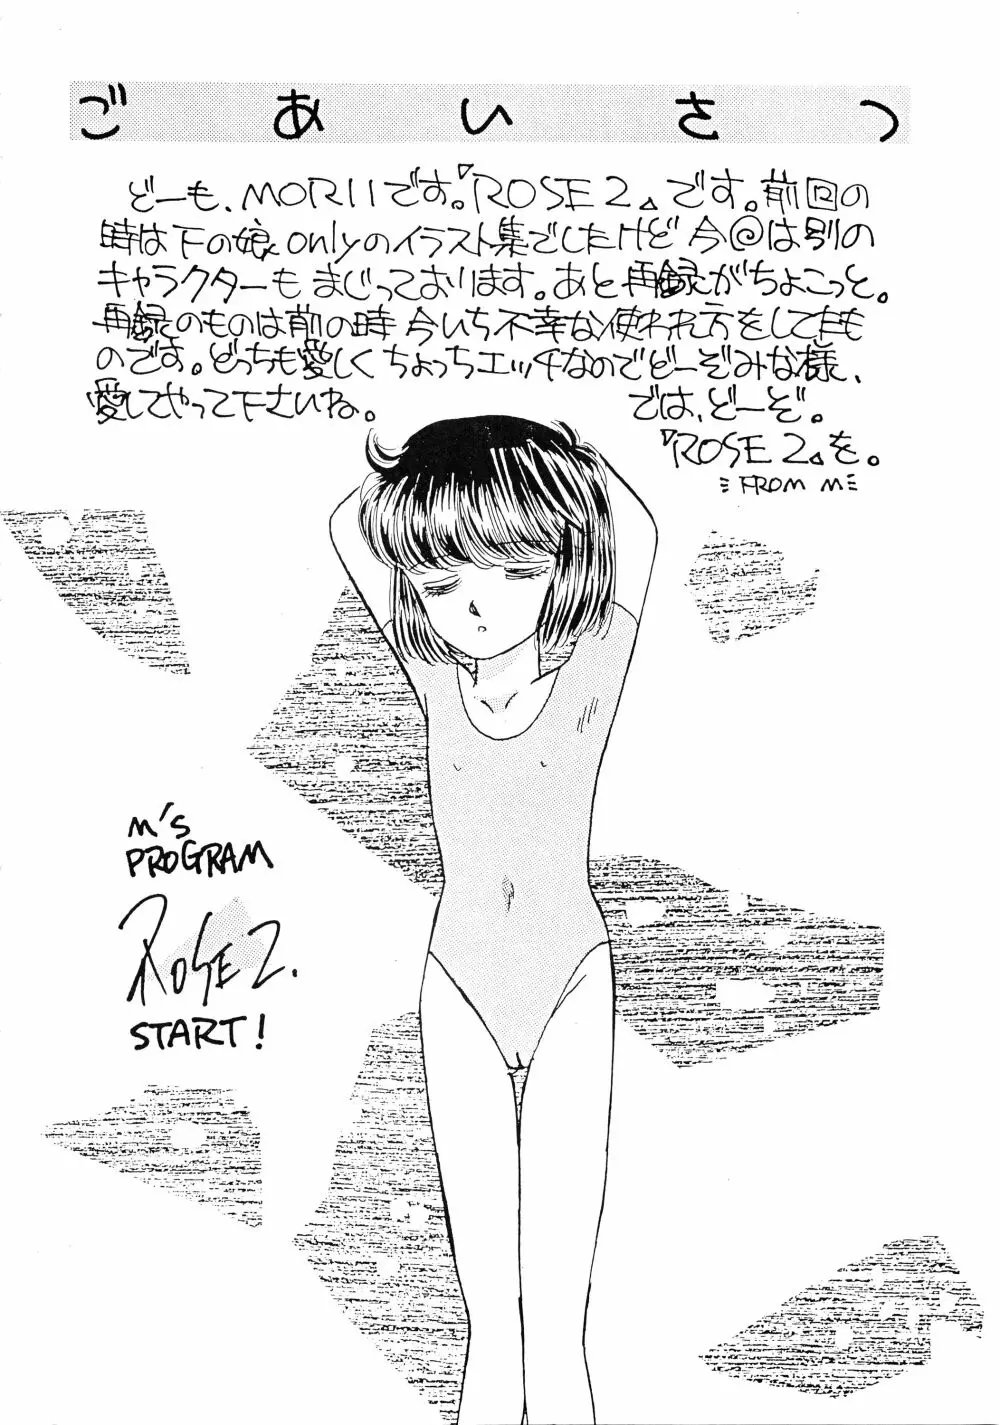 ごあいさつ
どーも、MORIIです。『ROSE2』です。前回の
時は下の娘onlyのイラスト集でしたけど今@は別の
キャラクターもまじっております。あと再録がちょこっと。
再録のものは前の時今いち不幸な使われ方をしてたも
のです。どっちも愛しくちょっちエッチなのでどーぞみな様、
愛してやって下さいね。
では、どーぞ。
『ROSE2』を。
FROM M
M's
PROGRAM
ROSE2.
START!